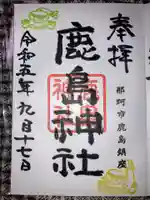 奉拝
那珂市鹿島鎮座
鹿島神社
令和五年九月十七日